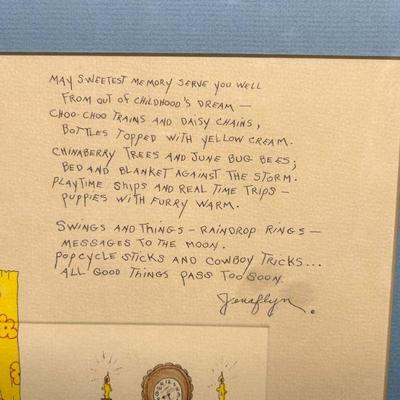 MAY SWEETEST MEMORY SERVE YOU WELL
FROM OUT OF CHILDHOOD'S DREAM —
CHOO-CHOO TRAINS AND DAISY CHAINS,
BOTTLES TOPPED WITH YELLOW CREAM.
CHINABERRY TREES AND JUNE BUG BEES;
BED AND BLANKET AGAINST THE STORM.
PLAYTIME SHIPS AND REAL TIME TRIPS —
PUPPIES WITH FURRY WARM.
SWINGS AND THINGS — RAINDROP RINGS —
MESSAGES TO THE MOON.
POPCYCLE STICKS AND COWBOY TRICKS...
ALL GOOD THINGS PASS TOO SOON.